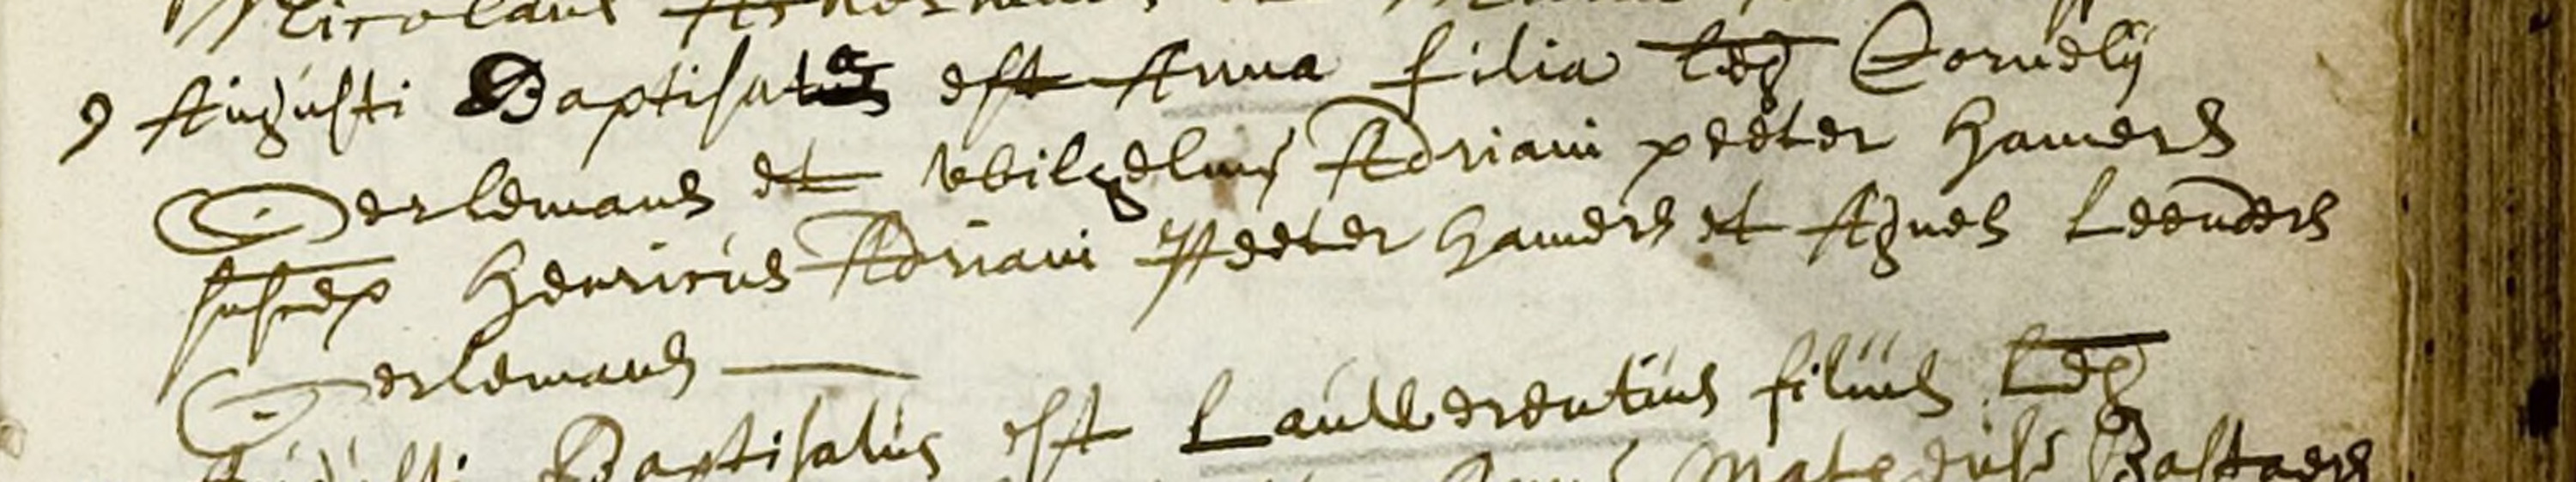 Nicolaus
9 Augusti Baptisata est Anna filia leg Cornelÿ
Oerlemans et Wilhelmi Adriani peeter hamers
suscep Henricus Adriani Peeter hamers et Agnes Leenders
Oerlemans
Augusti Baptisatus est Lauwerentius filius Leg
Bastaens